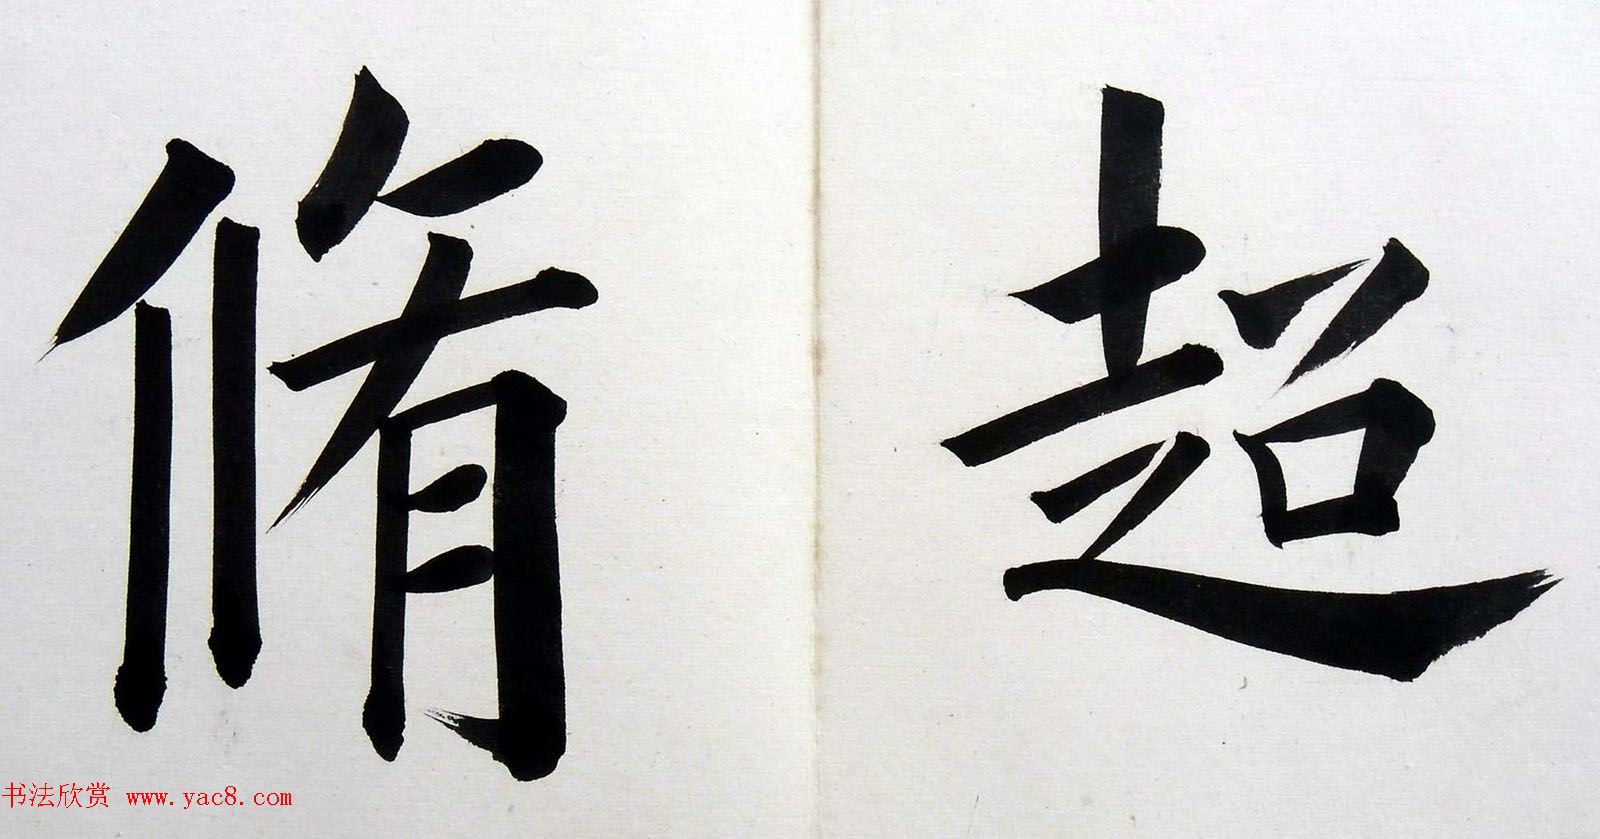 超
脩
书法欣赏 www.yac8.com